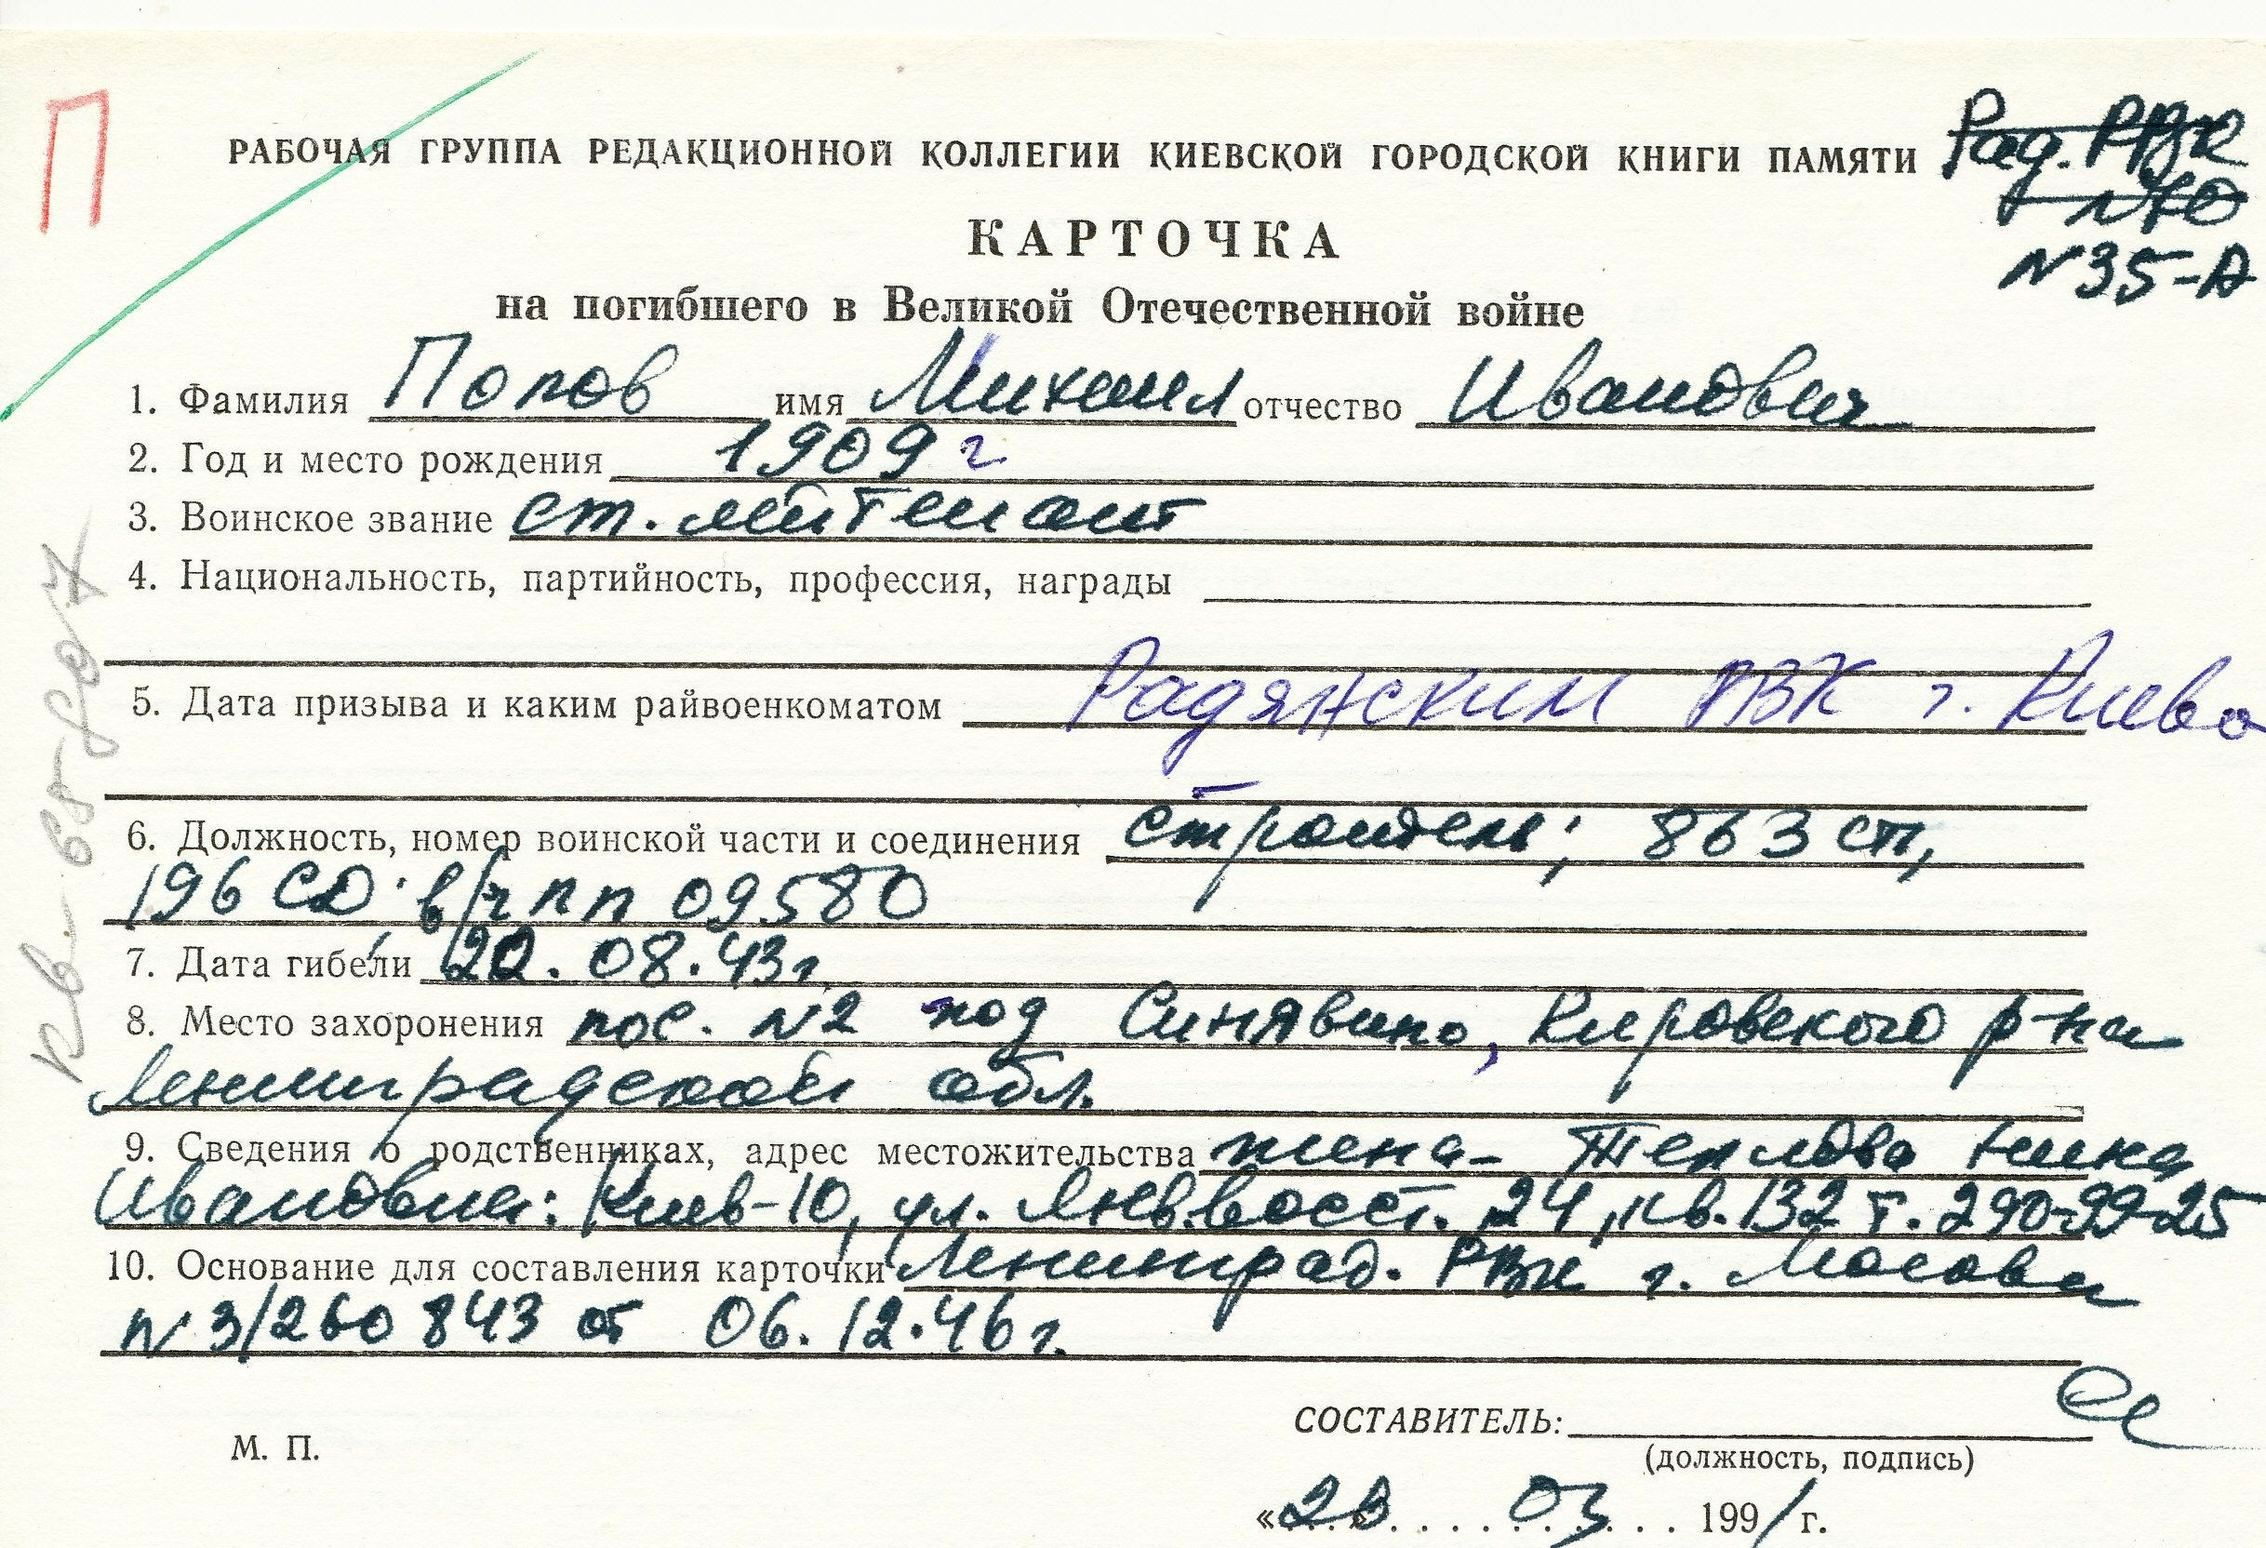 П
РАБОЧАЯ ГРУППА РЕДАКЦИОННОЙ КОЛЛЕГИИ КИЕВСКОЙ ГОРОДСКОЙ КНИГИ ПАМЯТИ Рад. РВК
№ 35-А
КАРТОЧКА
на погибшего в Великой Отечественной войне
1. Фамилия Попов имя Михаил отчество Иванович
2. Год и место рождения 1909 г
3. Воинское звание ст. лейтенант
4. Национальность, партийность, профессия, награды
5. Дата призыва и каким райвоенкоматом Радянским РВК г. Киева
6. Должность, номер воинской части и соединения строитель; 863 сп,
196 СД; в/ч пп 09580
7. Дата гибели 22. 08. 43г.
8. Место захоронения пос. №2 под Синявино, Кировского р-на
Ленинградской обл.
9. Сведения о родственниках, адрес местожительства жена - Теплова
Ивановна: Киев-10, ул. Янв.восст. 24, кв. 132 т. 290-99-25
10. Основание для составления карточки Ленинград. РВК г. Москвы
№ 3/260843 от 06. 12. 46 г.
СОСТАВИТЕЛЬ:
М. П.
(должность, подпись)
03 1991 г.